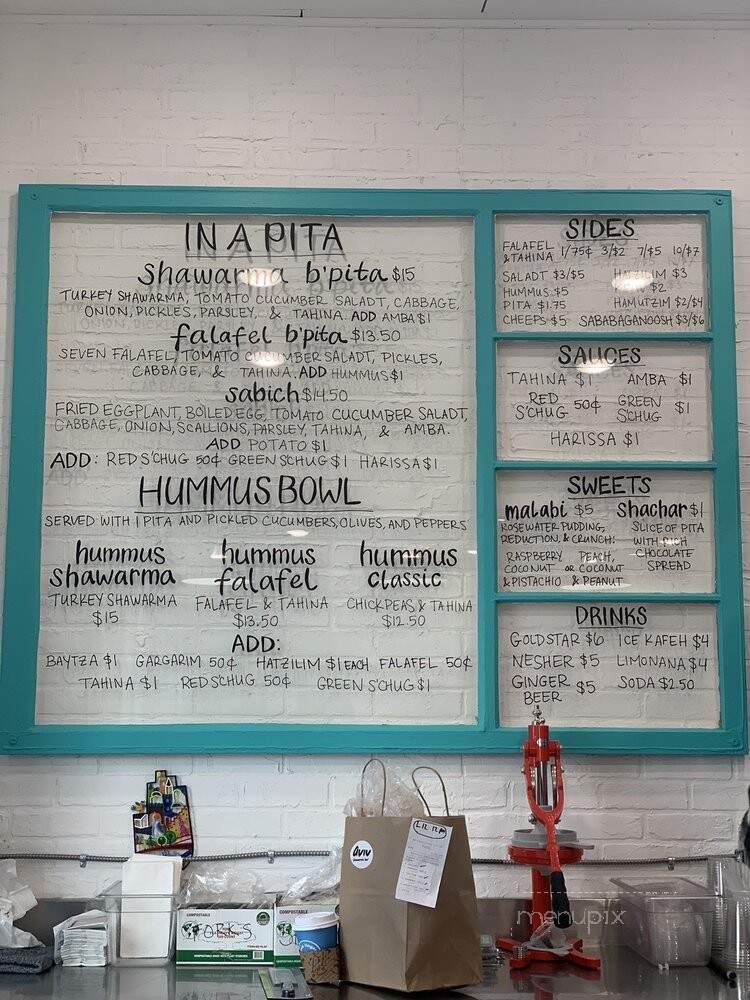 IN A PITA
shawarma b'pita $15
TURKEY SHAWARMA, TOMATO CUCUMBER SALADT, CABBAGE,
ONION, PICKLES, PARSLEY, & TAHINA. ADD AMBA $1
falafel b'pita $13.50
SEVEN FALAFEL, TOMATO CUCUMBER SALADT, PICKLES,
CABBAGE, & TAHINA. ADD HUMMUS $1
sabich $14.50
FRIED EGGPLANT, BOILED EGG, TOMATO CUCUMBER SALADT,
CABBAGE, ONION, SCALLIONS, PARSLEY, TAHINA, & AMBA.
ADD POTATO $1
ADD: RED S'CHUG 50¢ GREEN SCHUG $1 HARISSA $1
HUMMUS BOWL
SERVED WITH 1 PITA AND PICKLED CUCUMBERS, OLIVES, AND PEPPERS
hummus shawarma
TURKEY SHAWARMA
$15
hummus falafel
FALAFEL & TAHINA
$13.50
hummus classic
CHICKPEAS & TAHINA
$12.50
ADD:
BAYTZA $1 GARGARIM 50¢ HATZILIM $1 EACH FALAFEL 50¢
TAHINA $1 RED S'CHUG 50¢ GREEN S'CHUG $1
SIDES
FALAFEL & TAHINA 1/75¢ 3/$2 7/$5 10/$7
SALADT $3/$5 HATZILIM $3
HUMMUS $5 $2
PITA $1.75 HAMUTZIM $2/$4
CHEEPS $5 SABABAGANOOSH $3/$6
SAUCES
TAHINA $1 AMBA $1
RED S'CHUG 50¢ GREEN S'CHUG $1
HARISSA $1
SWEETS
malabi $5
ROSEWATER PUDDING,
REDUCTION, & CRUNCH:
RASPBERRY PEACH,
COCONUT OR COCONUT
& PISTACHIO & PEANUT
Shachar $1
SLICE OF PITA
WITH RICH
CHOCOLATE
SPREAD
DRINKS
GOLDSTAR $6 ICE KAFEH $4
NESHER $5 LIMONANA $4
GINGER BEER $5 SODA $2.50
aviv
COMPOSTABLE
FORKS
COMPOSTABLE
menupix